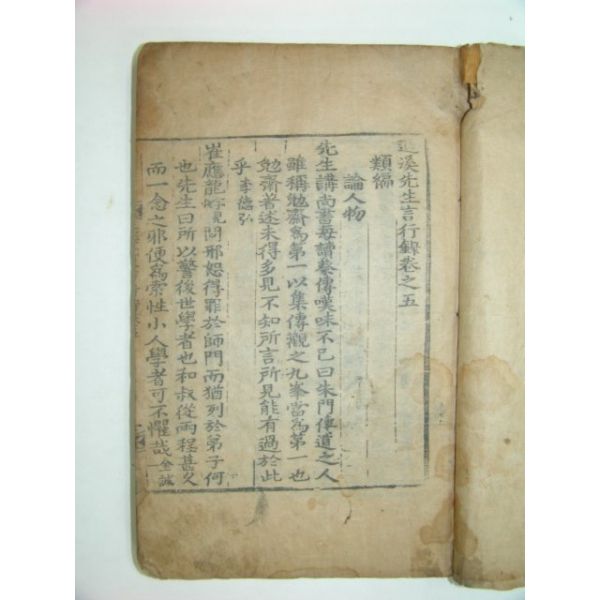 退溪先生言行錄卷之五
類編
論人物
先生講尚書每讀蔡傳嘆味不已曰朱門傳道之人
雖稱勉齋爲第一以集傳觀之九峯當爲第一也
勉齋著述未得多見不知所言所見能有過於此
乎李德弘
崔應龍問邢恕得罪於師門而猶列於弟子何
也先生曰所以警後世學者也和叔從兩程甚久
而一念之邪便爲索性小人學者可不懼哉金誠一